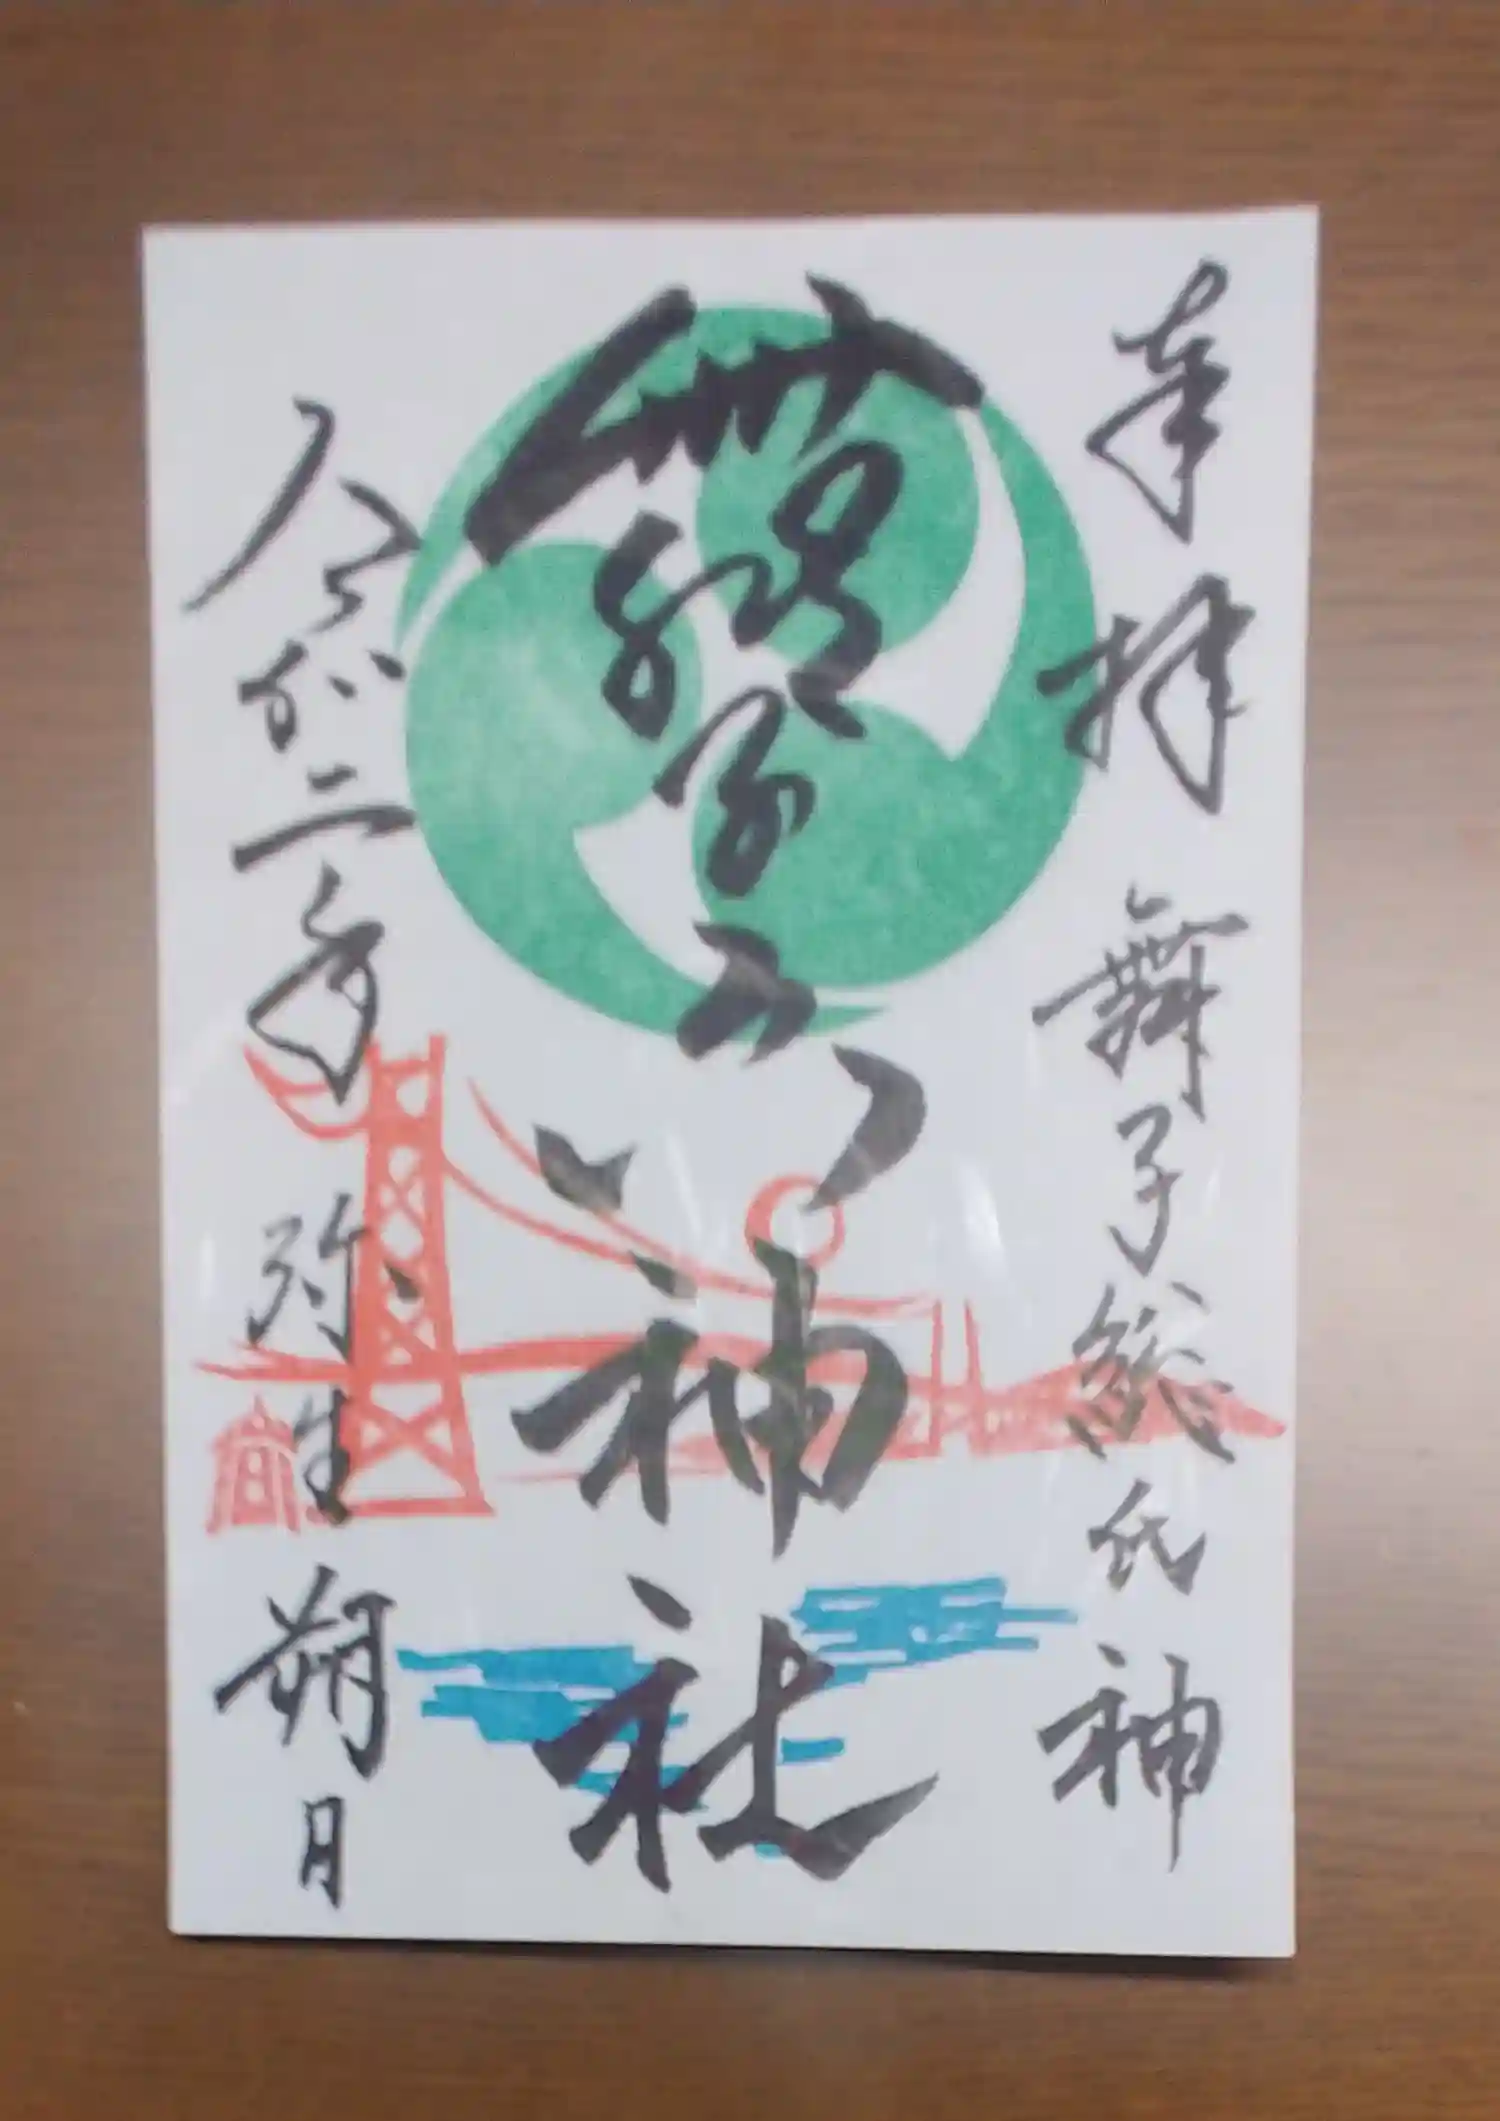 奉拝 舞子総氏神
舞子六神社
令和二年 弥生 朔日